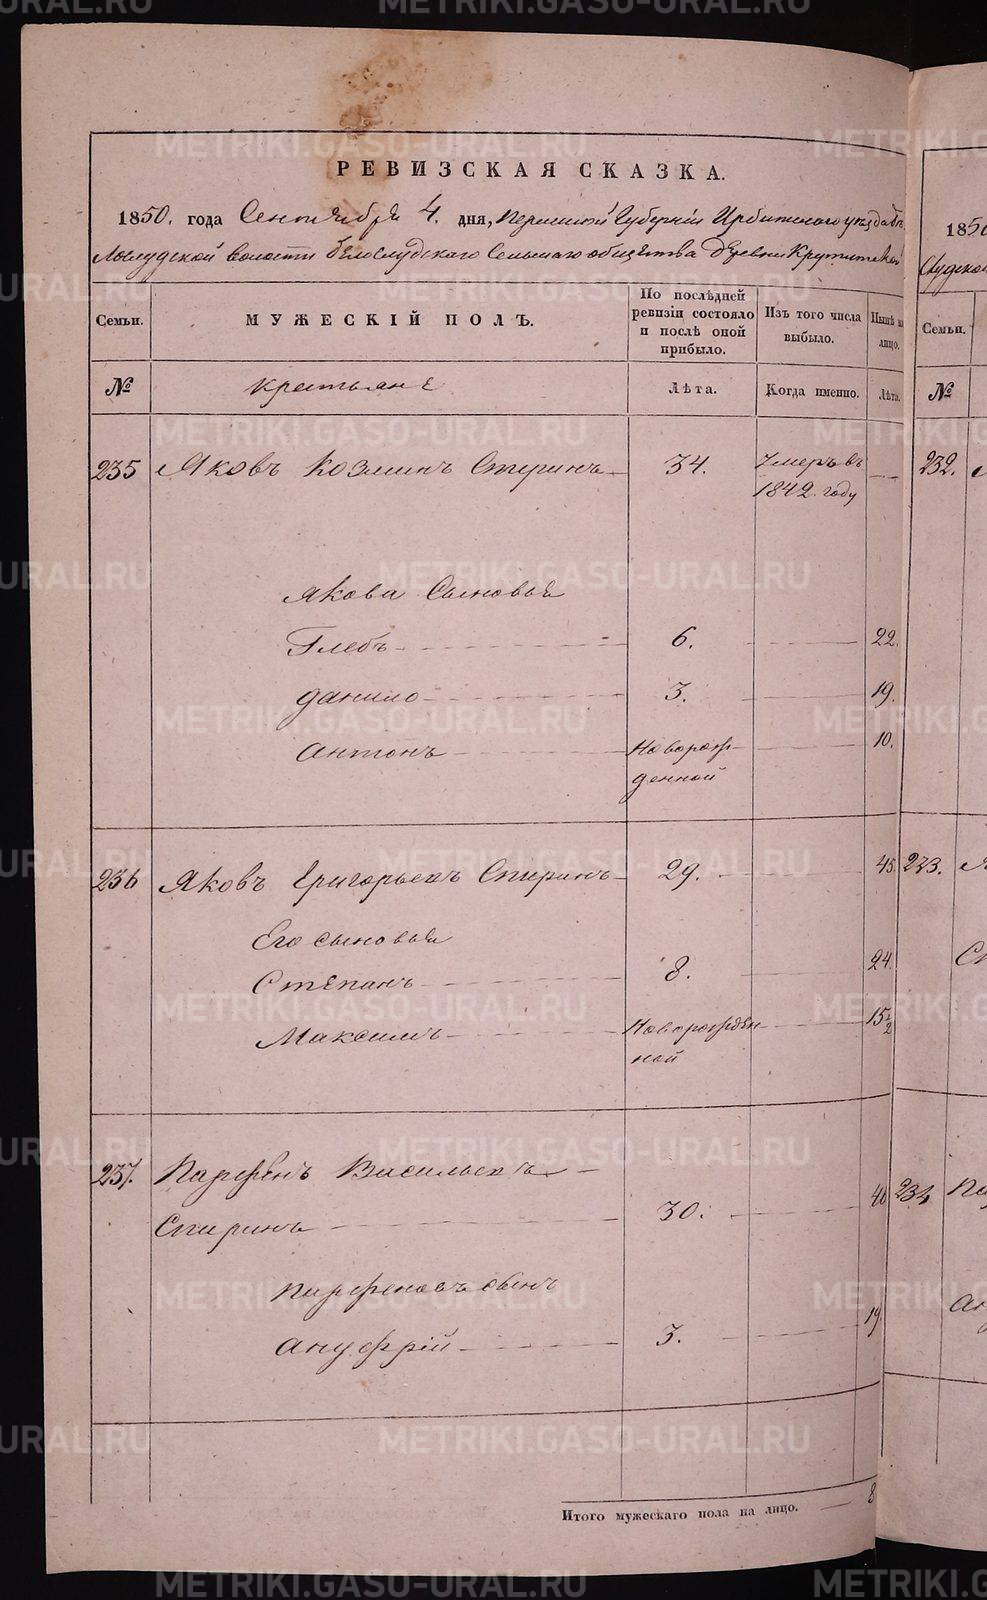 РЕВИЗСКАЯ СКАЗКА.
1850. года Сентября 4. дня, Пермской Губернии Ирбитскаго уѣзда Бѣ
лослудской волости Бѣлослудскаго Сельскаго общества Деревни Крутитской
Семьи.
МУЖЕСКІЙ ПОЛЪ.
По послѣдней
ревизіи состояло
и послѣ оной
прибыло.
Изъ того числа
выбыло.
Нынѣ на
лицо.
№
крестьяне
Лѣта.
Когда именно.
Лѣта.
235 Яковъ Козминъ Спиринъ 34. Умеръ въ
1842. году
Якова Сыновья
Глебъ 6. 22.
Данило 3. 19.
Антонъ Новорож- 10.
денной
236 Яковъ Григорьевъ Спиринъ 29. 45.
Его сыновья
Степанъ 8. 24.
Максимъ Новорожден 15 1/2
ной
237. Парфенъ Васильевъ
Спиринъ 30. 46
Парфеновъ сынъ
Ануфрій 3. 19
Итого мужескаго пола на лицо. 8
1850
Семьи.
№
232.
233.
234
METRIKI.GASO-URAL.RU